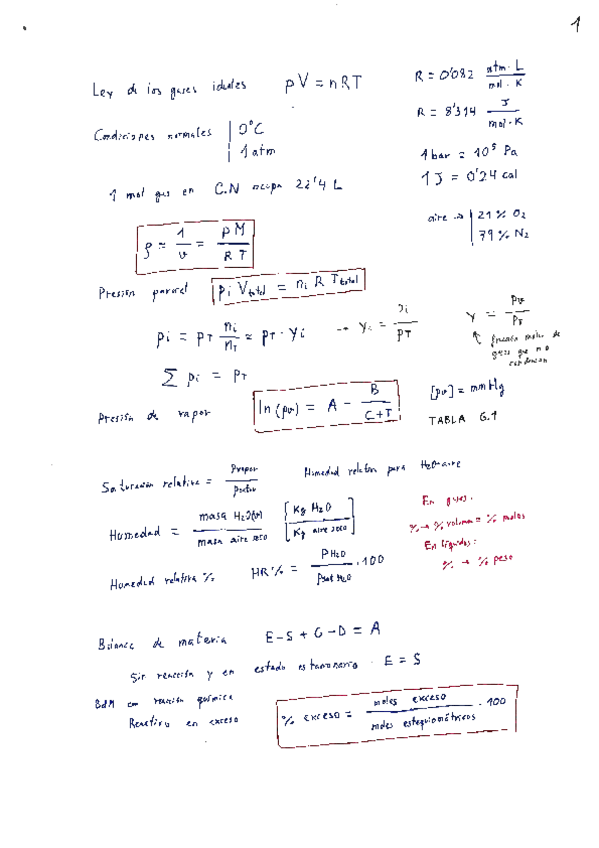 1
Ley de los gases ideales pV = nRT R = 0'082 atm·L / mol·K
R = 8'314 J / mol·K
Condiciones normales | 0°C
| 1 atm
1 bar = 10⁵ Pa
1 J = 0'24 cal
1 mol gas en C.N ocupa 22'4 L
aire → | 21% O₂
| 79% N₂
ρ = 1/v = PM / RT
Presión parcial pi Vtotal = ni R Ttotal
pi = pT ni/nT = pT · yi → yi = /pT
y = pv/PT
fracción molar de
gases que no
condensan
∑ pi = pT
Presión de vapor ln (pv) = A − B / C+T [pv] = mmHg
TABLA 6.1
Saturación relativa = Pvapor / Humedad relativa para H₂O-aire
Humedad = masa H₂O(v) / masa aire seco [Kg H₂O / Kg aire seco]
En gases:
% → % volumen = % moles
En líquidos:
% → % peso
Humedad relativa % HR% = PH₂O / Psat H₂O · 100
Balance de materia E−S+G−D = A
Sin reacción y en estado estacionario E = S
BdM con reacción química
Reactivo en exceso
% exceso = moles exceso / moles estequiométricos · 100